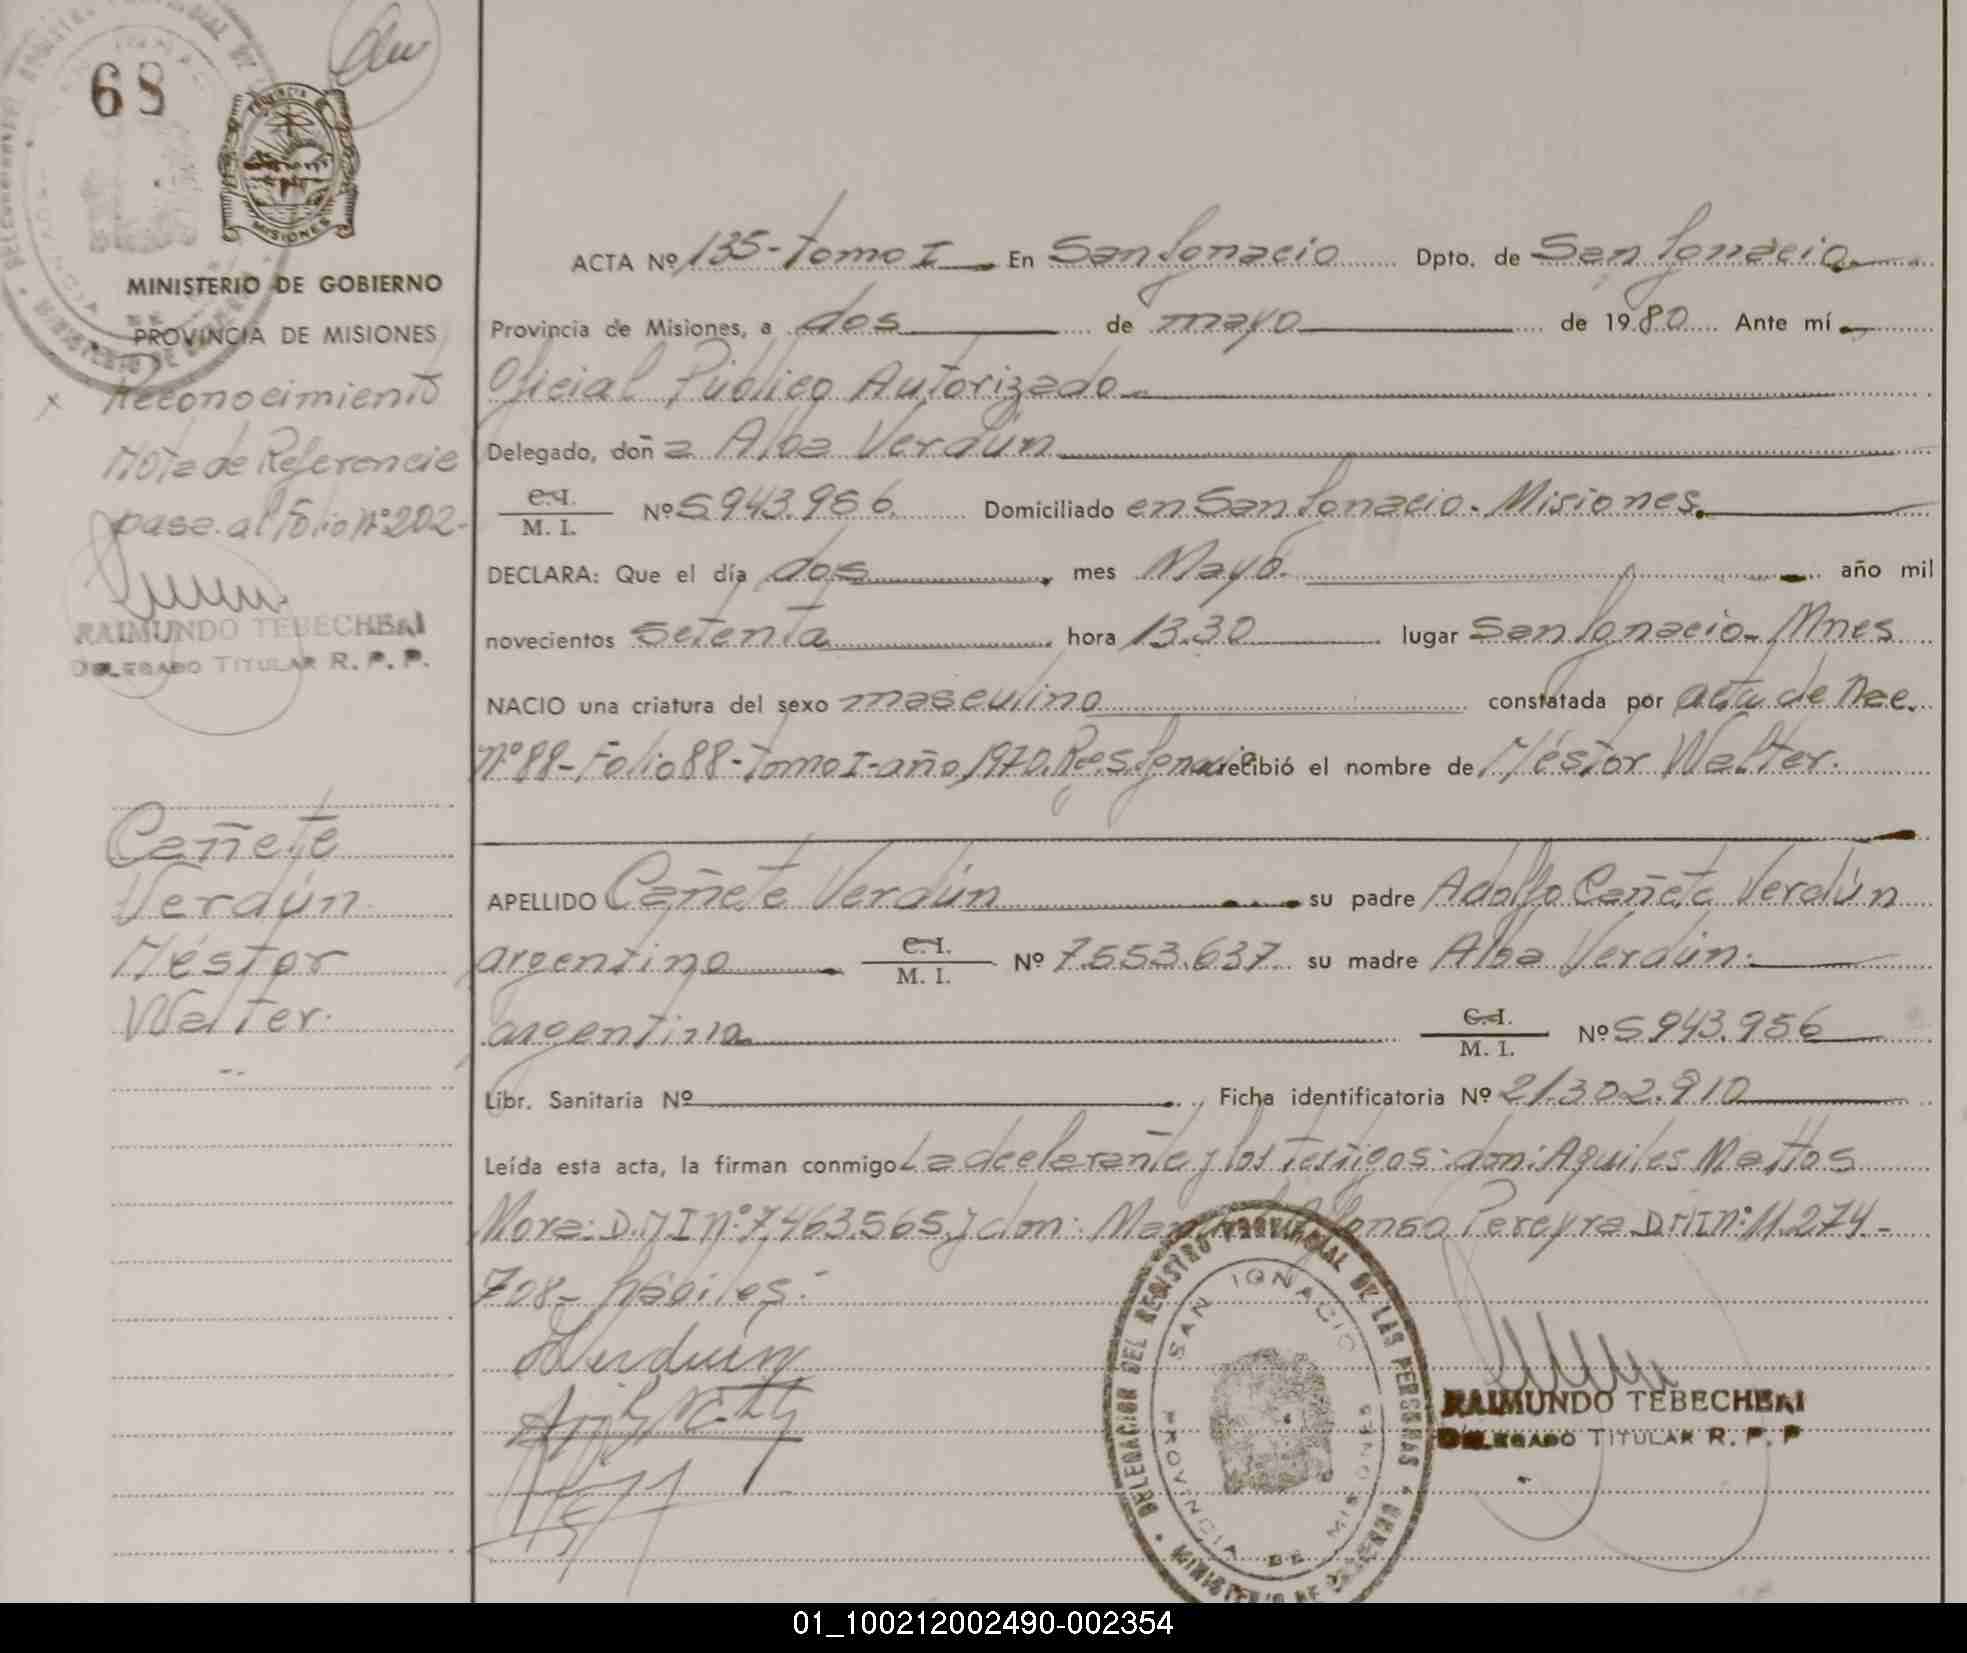 68
PROVINCIA
MISIONES
MINISTERIO DE GOBIERNO
PROVINCIA DE MISIONES
x Reconocimiento
Nota de Referencia
pasa al Folio Nº 202-
RAIMUNDO TEBECHERI
DELEGADO TITULAR R. P. P.
Cañete
Verdún
Néstor
Walter.
ACTA Nº 135- tomo I En San Ignacio Dpto. de San Ignacio
Provincia de Misiones, a dos de mayo de 1980 Ante mí
Oficial Público Autorizado
Delegado, doña Alba Verdún
C.I. / M. I. Nº 5.943.956 Domiciliado en San Ignacio. Misiones.
DECLARA: Que el día dos, mes Mayo. año mil
novecientos setenta, hora 13.30 lugar San Ignacio- Mnes
NACIO una criatura del sexo masculino constatada por acta de Nac.
Nº 88- Folio 88- tomo I- año 1970. recibió el nombre de Néstor Walter.
APELLIDO Cañete Verdún su padre Adolfo Cañete Verdún
argentino C.I. / M. I. Nº 7.553.637 su madre Alba Verdún.
argentina C.I. / M. I. Nº 5.943.956
Libr. Sanitaria Nº Ficha identificatoria Nº 21.302.910
Leída esta acta, la firman conmigo La declarante y los testigos: don: Aquiles Mattos
Mora: D.N.I Nº 7.463.565. y don: Pereyra D.N.I Nº: 11.274-
708- hábiles:
Verdún
DELEGACION DEL REGISTRO PROVINCIAL DE LAS PERSONAS
SAN IGNACIO
PROVINCIA DE MISIONES
MINISTERIO DE GOBIERNO
RAIMUNDO TEBECHERI
DELEGADO TITULAR R. P. P
01_100212002490-002354